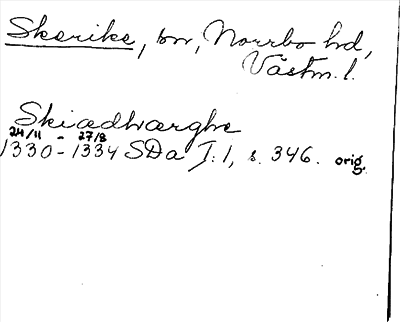 Skerike, sn, Norrbo hd,
Västm. l.
Skiædhwærghe
24/11 - 27/8
1330 - 1334 SDa I:1, s. 346. orig.